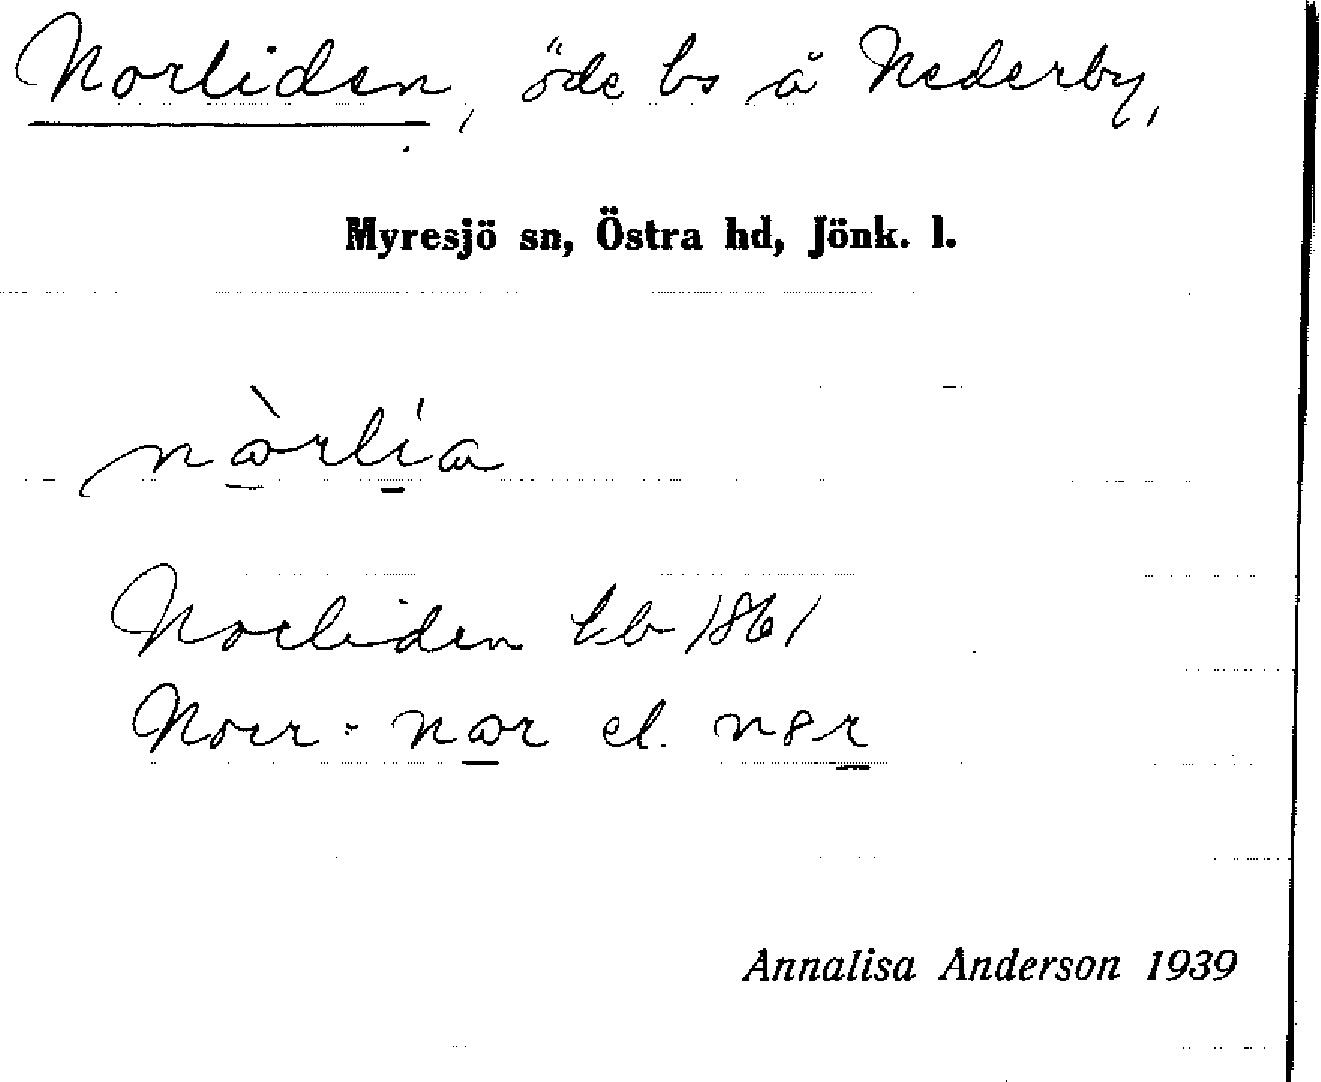 Norliden, öde bs å Nederby,
Myresjö sn, Östra hd, Jönk. l.
Norliden kb 1861
Norr: nar el.
Annalisa Anderson 1939